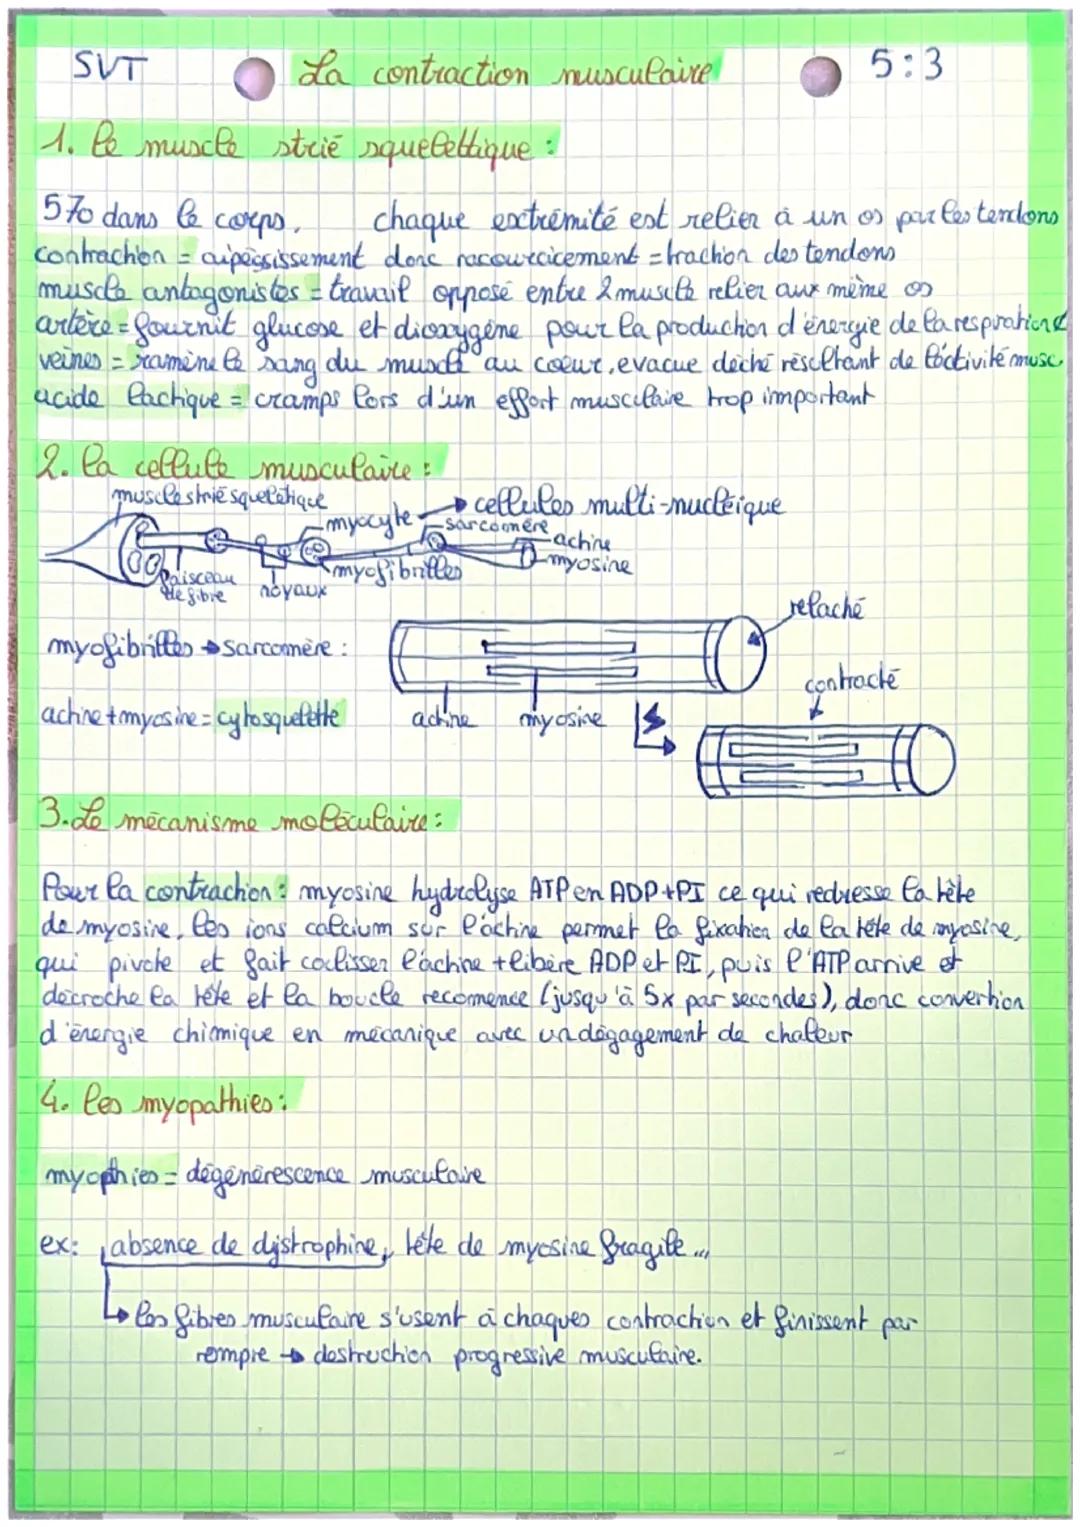 SVT La contraction musculaire 5:3
1. le muscle strié squelettique :
570 dans le corps. chaque extrémité est relier à un os par les tendons
contraction = aipégsissement donc racourcicement = traction des tendons
muscle antagonistes = travail opposé entre 2 muscle relier aux même os
artère = fournit glucose et dioxygène pour la production d'énergie de la respiration
veines = ramène le sang du muscle au coeur, evacue déché résultant de l'activité musc.
acide lactique = cramps lors d'un effort musculaire trop important
2. la cellule musculaire :
muscle strié squelétique
myocyte → cellules multi-nucléique
sarcomère
actine
myosine
faisceau de fibre
noyaux
myofibrilles
relaché
myofibrilles → sarcomère :
contracté
actine + myosine = cytosquelette
actine myosine
3. Le mécanisme moléculaire :
Pour la contraction : myosine hydrolyse ATP en ADP + PI ce qui redresse la tête
de myosine, les ions calcium sur l'actine permet la fixation de la tête de myosine,
qui pivote et fait coclisser l'actine + libère ADP et PI, puis l'ATP arrive et
décroche la tête et la boucle recomence (jusqu'à 5x par secondes), donc convertion
d'énergie chimique en mécanique avec un dégagement de chaleur
4. les myopathies :
myopthies = dégénérescence musculaire
ex: absence de dystrophine, tête de myosine fragile ...
→ les fibres musculaire s'usent à chaques contraction et finissent par
rompre → destruction progressive musculaire.